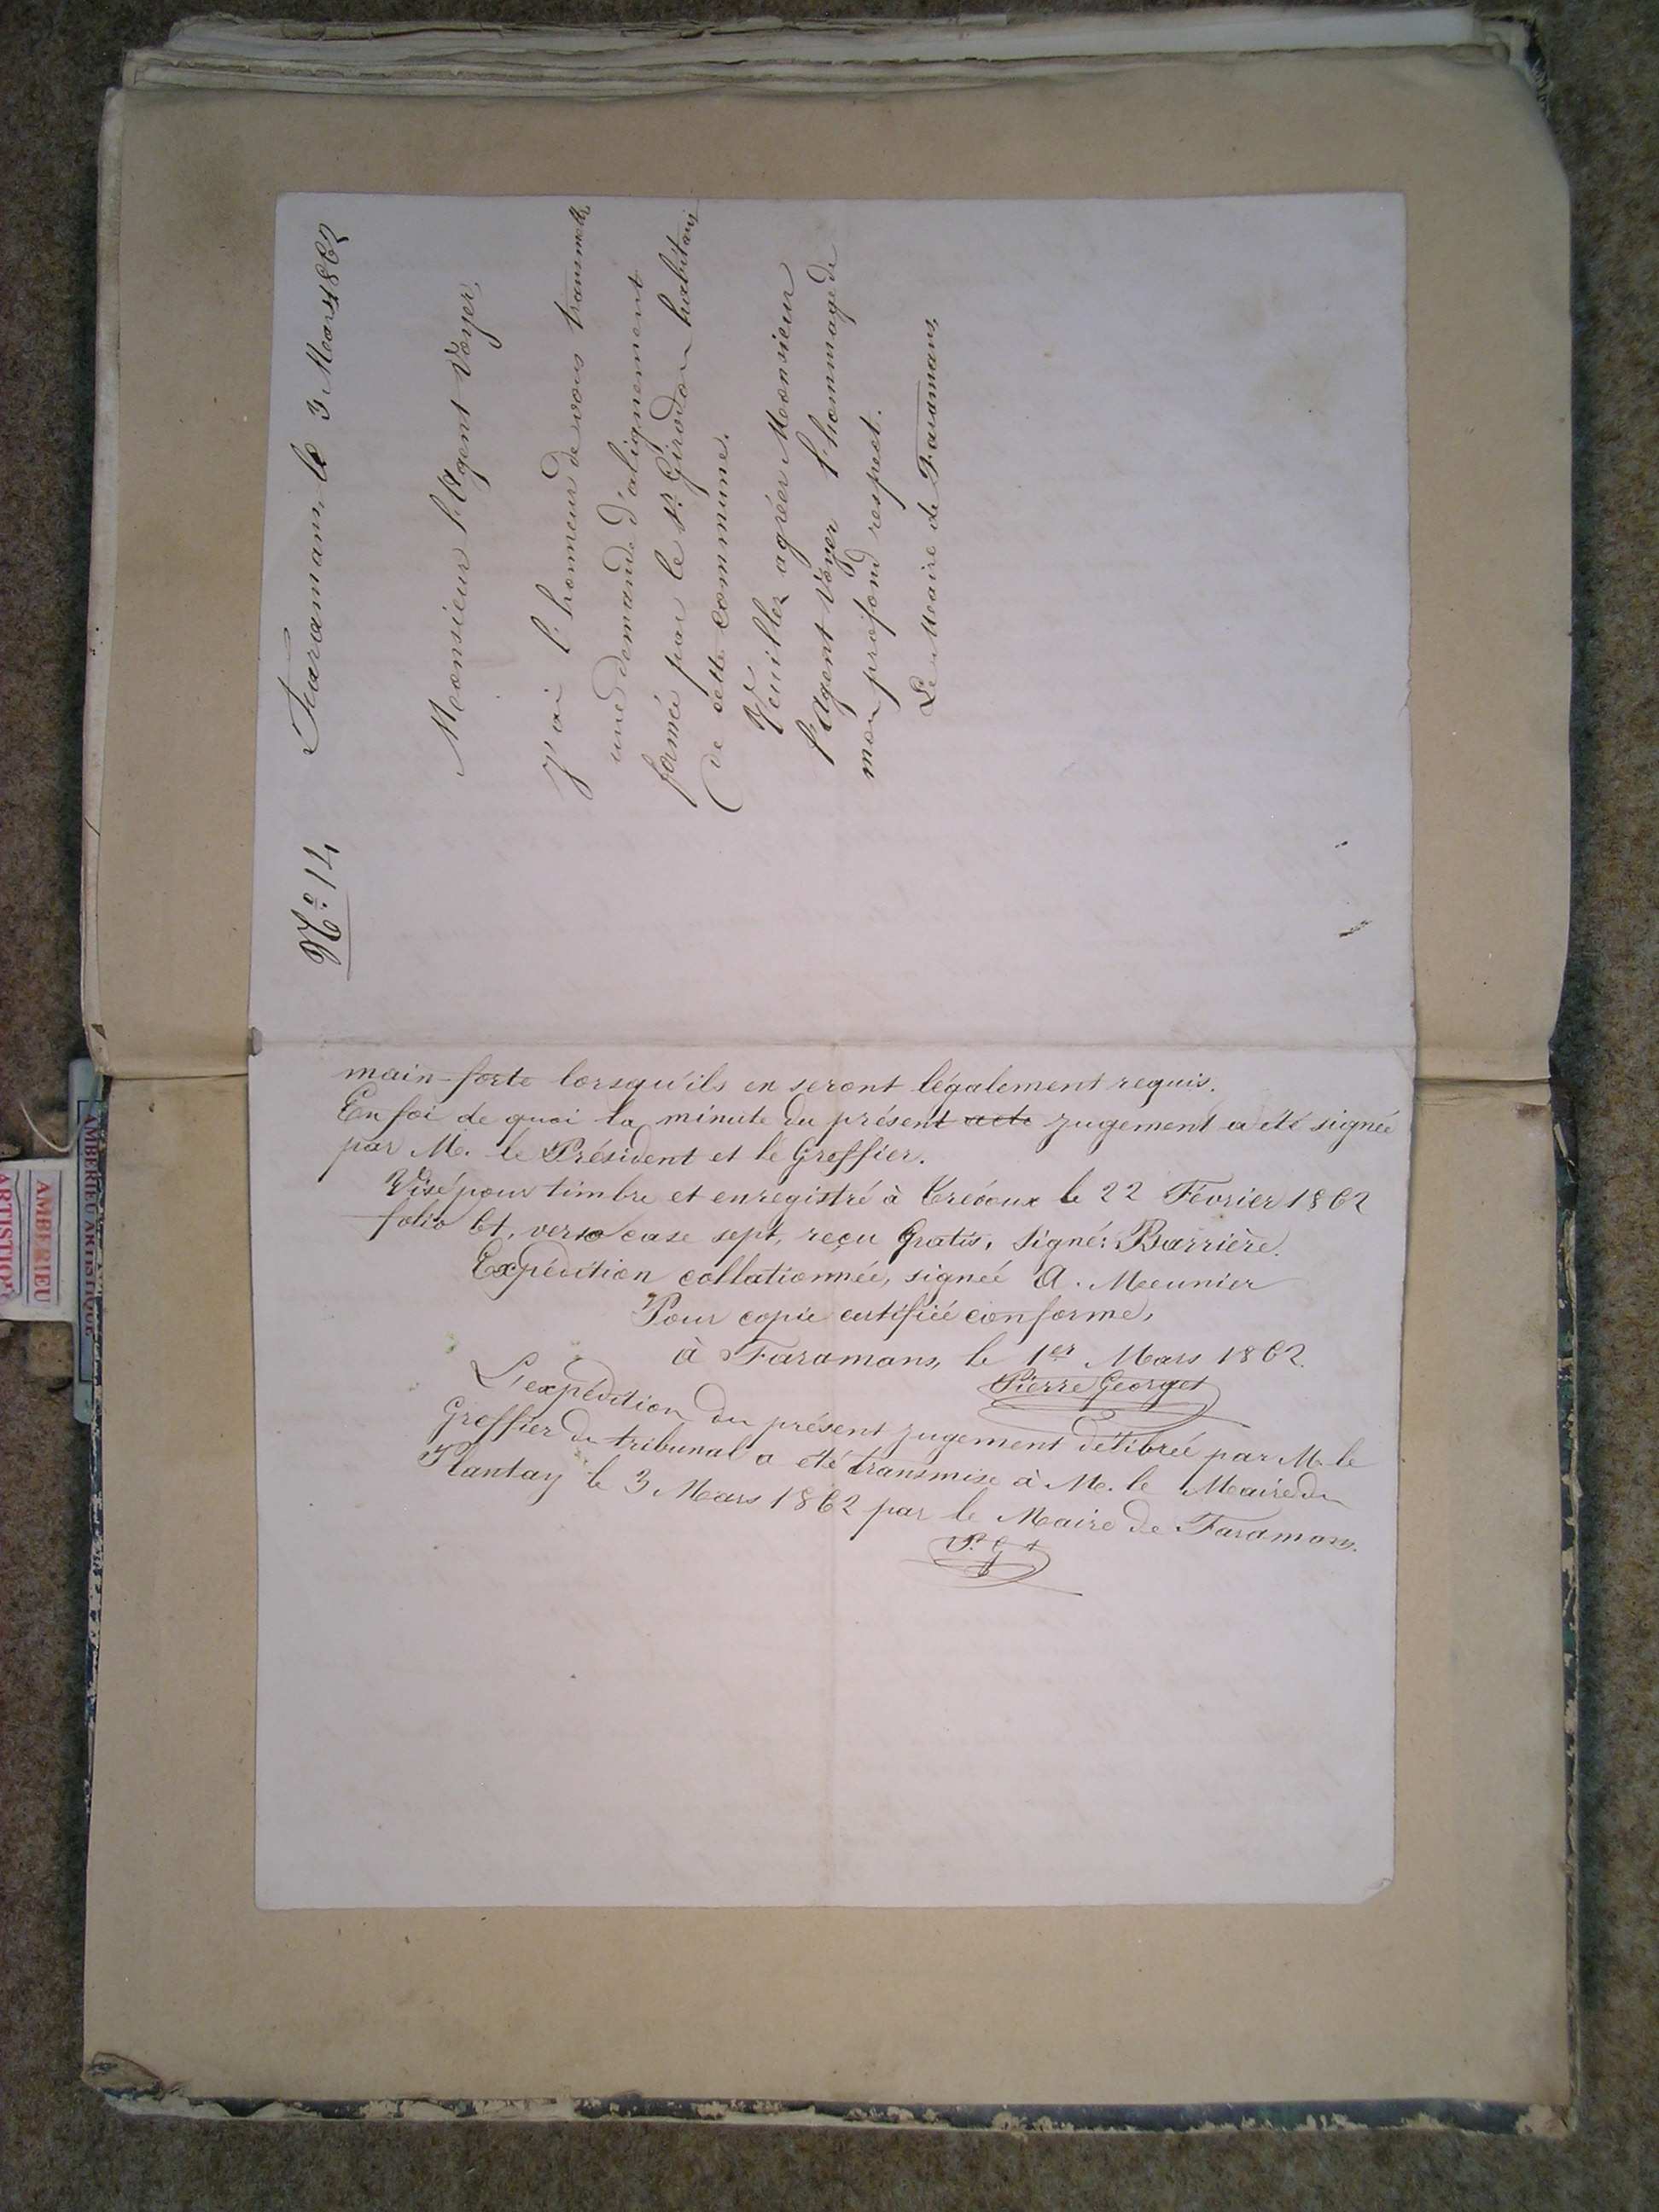 N.º 14
Faramans, le 3 Mars 1862
Monsieur l'Agent Voyer,
J'ai l'honneur de vous transmettre
une demande d'alignement
formée par le Sr. Girodon habitant
de cette commune.
Veuillez agréer Monsieur
l'Agent Voyer l'hommage de
mon profond respect.
Le Maire de Faramans,
main-forte lorsqu'ils en seront légalement requis.
En foi de quoi la minute du présent acte jugement a été signée
par M. le Président et le Greffier.
Visé pour timbre et enregistré à Trévoux le 22 Février 1862
folio 61, verso case sept, reçu Gratis, Signé: Barrière.
Expédition collationnée, signée A. Meunier
Pour copie certifiée conforme,
à Faramans, le 1er Mars 1862.
Pierre Georges
L'expédition du présent jugement délibrée par M. le
Greffier du tribunal a été transmise à M. le Maire du
Plantay le 3 Mars 1862 par le Maire de Faramans.
AMBERIEU ARTISTIQUE
AMBERIEU